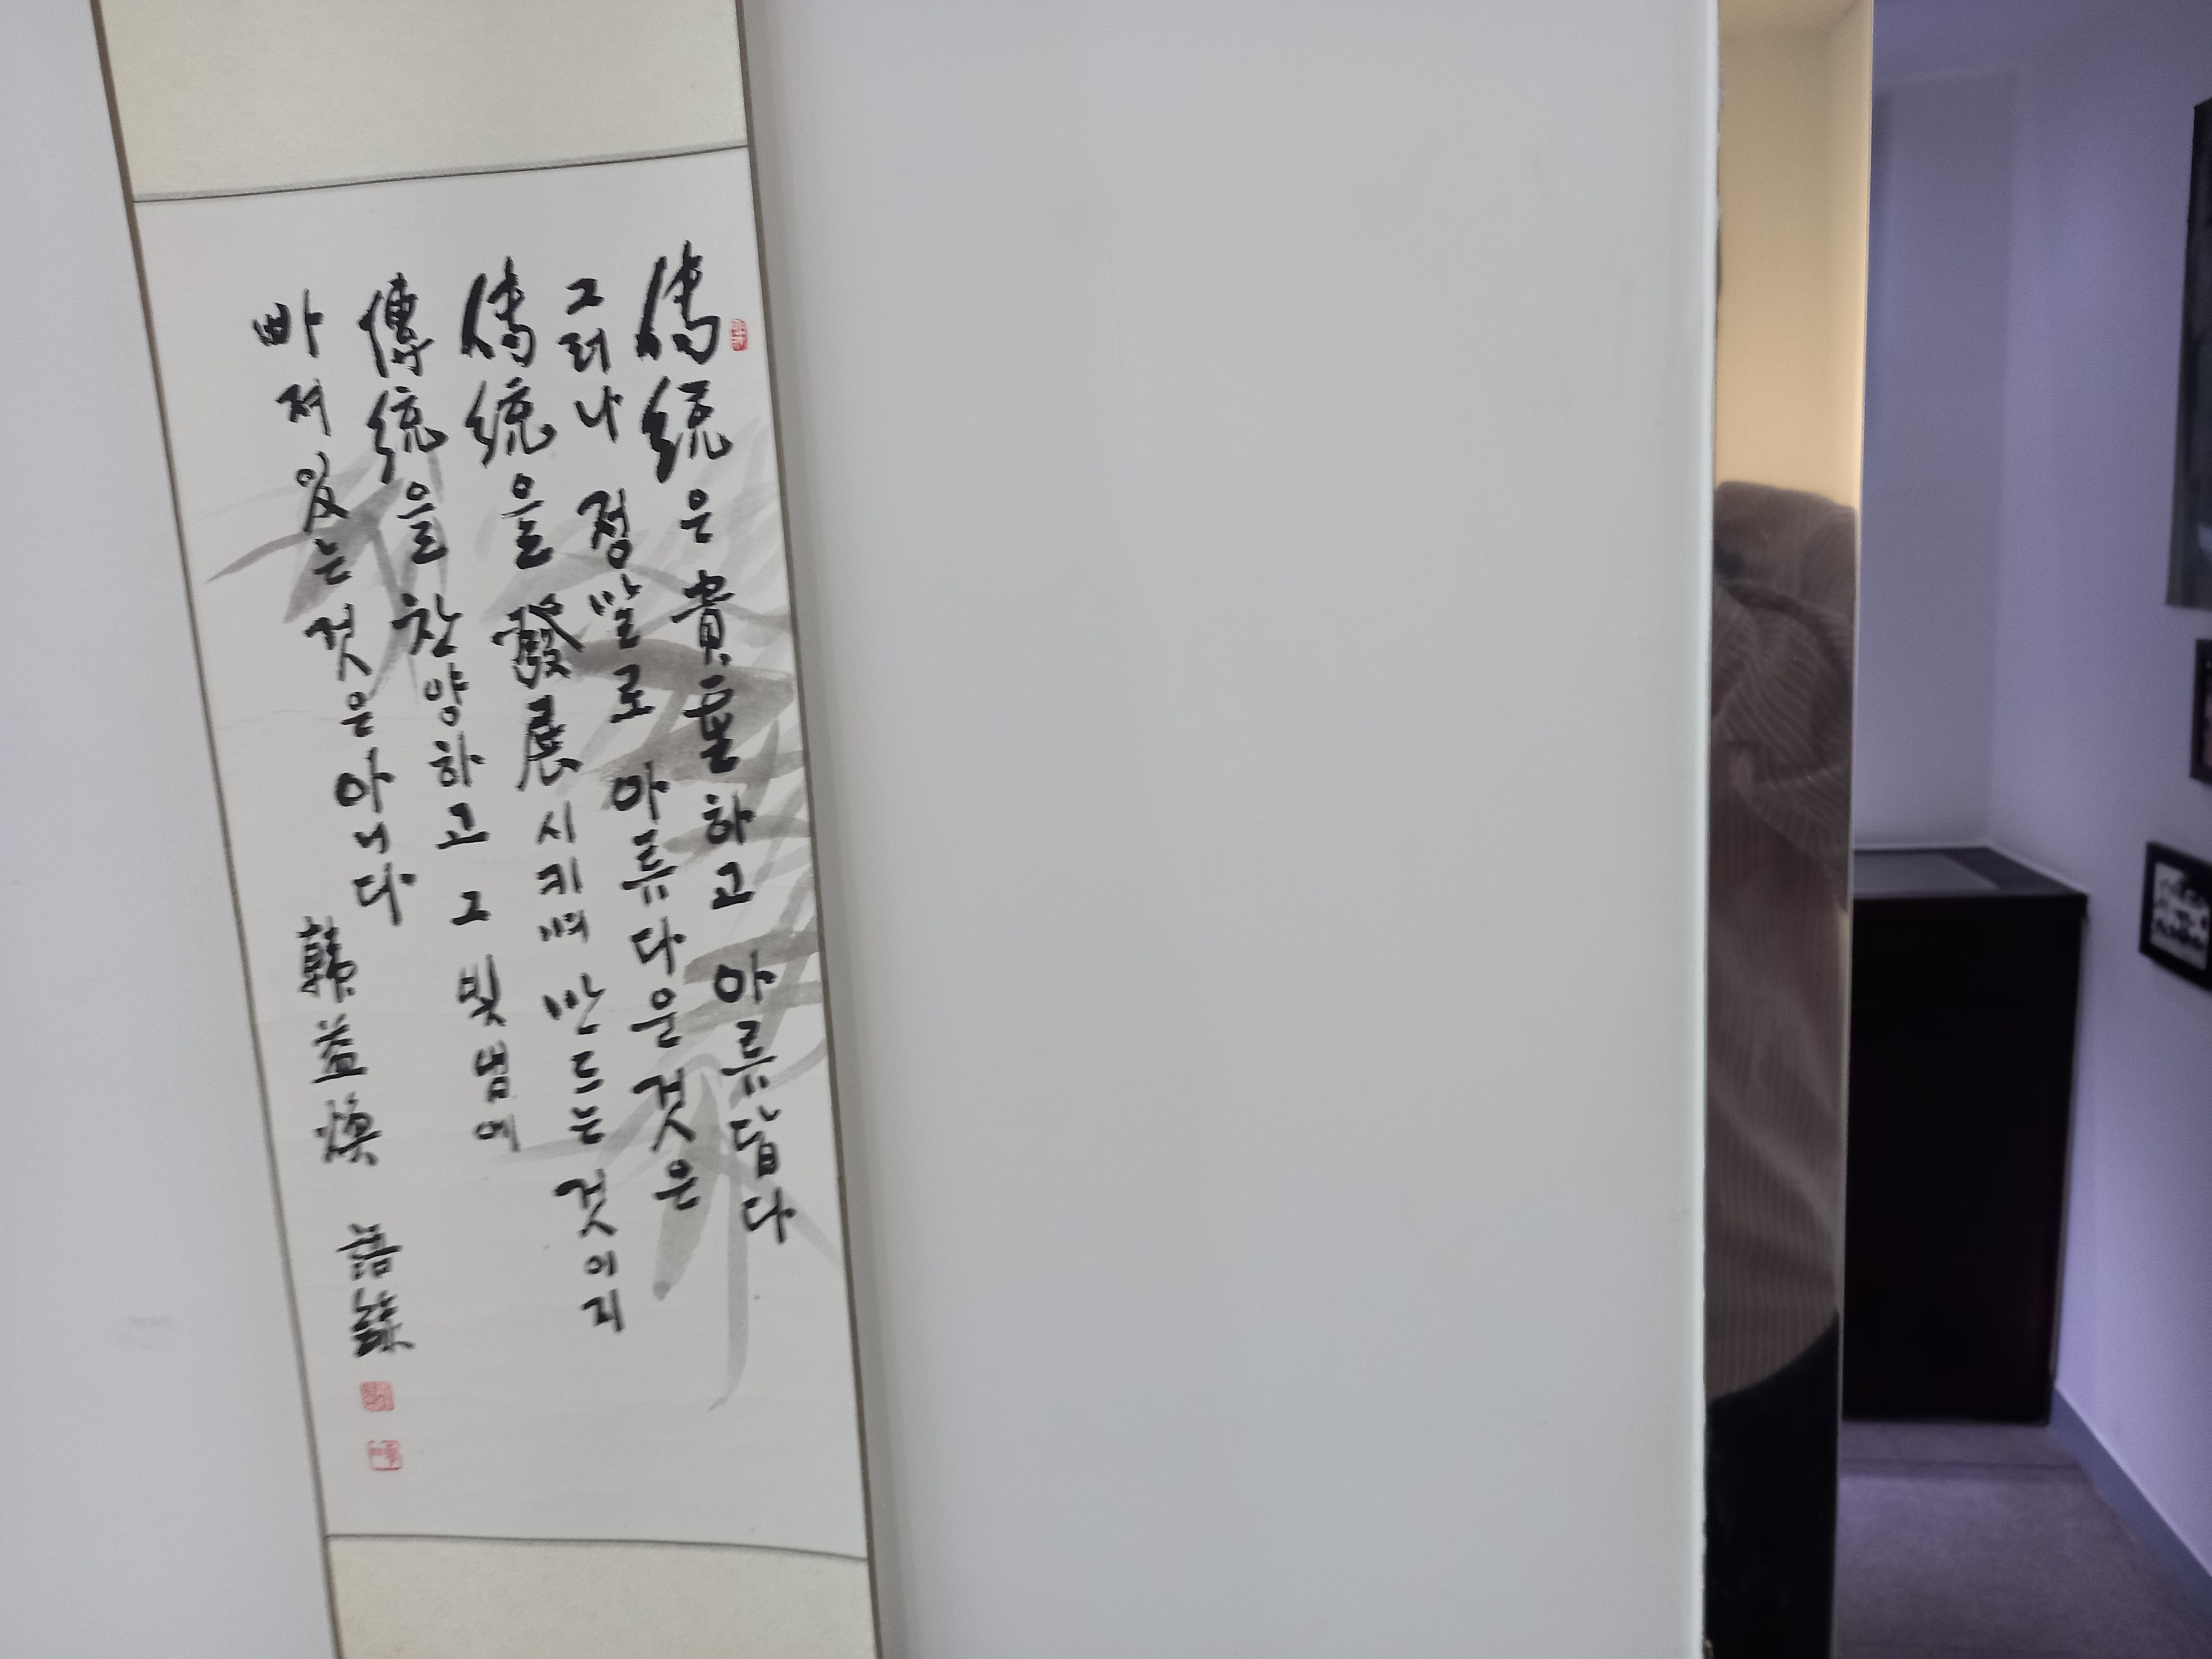 傳統은 貴重하고 아름답다
그러나 정말로 아름다운 것은
傳統을 發展시키며 만드는 것이지
傳統을 찬양하고 그 빛냄에
빠져있는 것은 아니다
韓益煥 語錄